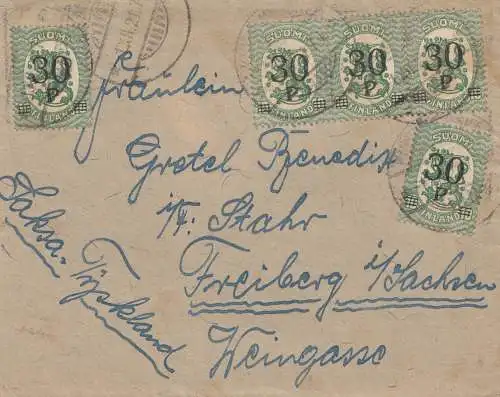 SUOMI
30
P
FINLAND
SUOMI
30
P
FINLAND
SUOMI
30
P
FINLAND
SUOMI
30
P
FINLAND
SUOMI
30
P
FINLAND
Fräulein
Gretel Benedix
i/F. Stahr
Freiberg i/Sachsen
Weingasse
Saksa-
Tyskland